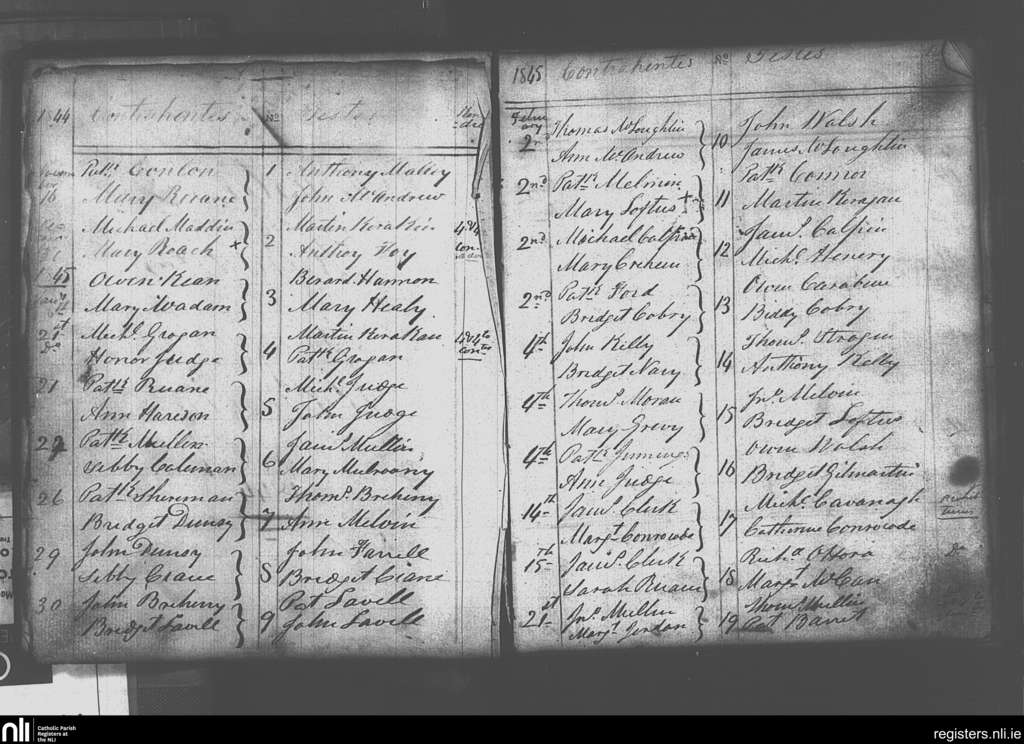 1844 Contrahentes No Testes
10 Patk. Conlon 1 Anthony Malley
Mary Ruane John McAndrew
Michael Maddin 2 Martin Kerakin
Mary Roach + Anthoy Foy
1845 Owen Kean 3 Berard Hannon
Mary Wadam Mary Healy
21st Michl. Grogan 4 Martin Kerakan
Do Honor Judge Patk. Grogan
21 Patk. Ruane 5 Michl. Judge
Ann Hareson John Judge
Patk. Mullin 6 Jams. Mullin
Sibby Coleman Mary Mulroony
26 Patk. Thurman 7 Thoms. Breheny
Bridget Duncy Ann Melvin
29 John Duncy 8 John Farrell
Sibby Crane Bridget Crane
30 John Breheny 9 Pat Lavell
Bridget Lavell John Lavell
1845 Contrahentes No Testes
February
2nd Thomas McLoughlin 10 John Walsh
Ann McAndrew James McLoughlin
2nd Patk. Melvin 11 Patk Connor
Mary Loftus + Martin Keragan
2nd Michael Calpin 12 Jams. Calpin
Mary Crehen Michl. Henery
2nd Patk. Ford 13 Owen Carabine
Bridget Cobry Biddy Cobry
4th John Kelly 14 Thoms.
Bridget Navy Anthony Kelly
4th Thoms. Moran 15 Jno. Melvin
Mary Grevy Bridget Loftus
4th Patk. Jennings 16 Owen Walsh
Ann Judge Bridget Gilmartin
14th Jams. Clusk 17 Michl. Cavanagh
Margt. Conrowde Catherine Conrowde
15th Jams. Clusk 18 Richd. OHora
Sarah Ruane Margt. McCan
21st Jno. Mullin 19 Thoms. Mullin
Margt. Jordan Pat Barret
nli Catholic Parish
Registers at
the NLI
registers.nli.ie